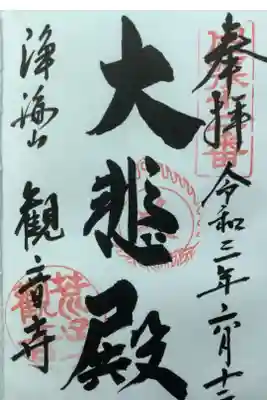 奉拝 令和三年六月十
大悲殿
淨海山 観音寺